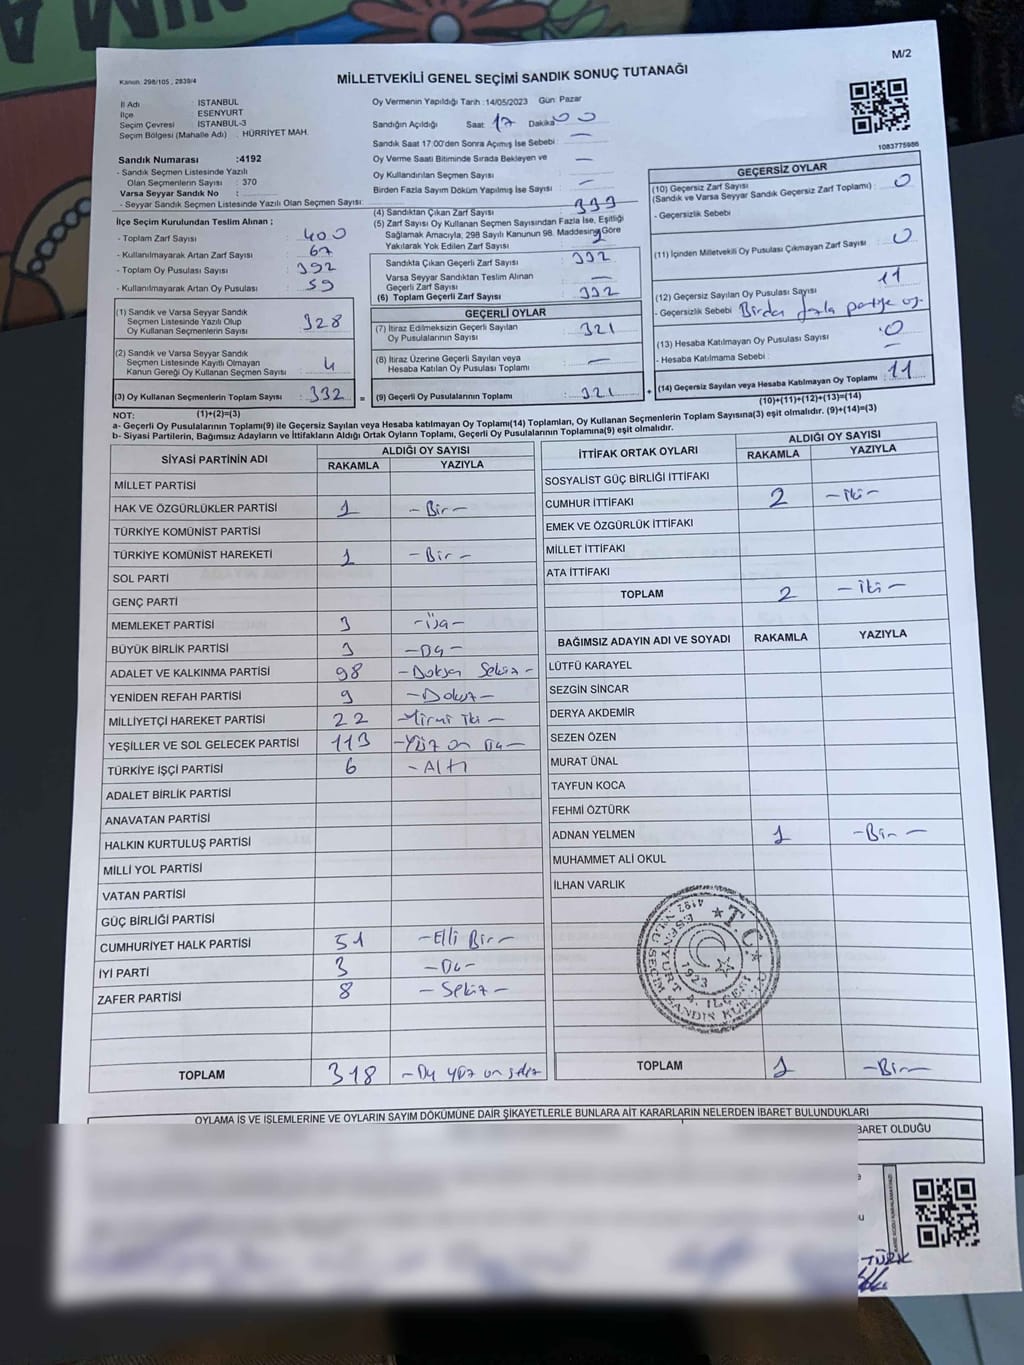 M/2
Kanun: 298/105 , 2839/4
MİLLETVEKİLİ GENEL SEÇİMİ SANDIK SONUÇ TUTANAĞI
İl Adı : İSTANBUL
İlçe : ESENYURT
Seçim Çevresi : İSTANBUL-3
Seçim Bölgesi (Mahalle Adı) : HÜRRİYET MAH.
Sandık Numarası :4192
- Sandık Seçmen Listesinde Yazılı
Olan Seçmenlerin Sayısı : 370
Varsa Seyyar Sandık No :
- Seyyar Sandık Seçmen Listesinde Yazılı Olan Seçmen Sayısı:
Oy Vermenin Yapıldığı Tarih :14/05/2023 Gün: Pazar
Sandığın Açıldığı Saat: 17 Dakika 00
Sandık Saat 17:00'den Sonra Açımış İse Sebebi : —
Oy Verme Saati Bitiminde Sırada Bekleyen ve
Oy Kullandırılan Seçmen Sayısı : —
Birden Fazla Sayım Döküm Yapılmış İse Sayısı : —
1083775986
İlçe Seçim Kurulundan Teslim Alınan ;
- Toplam Zarf Sayısı : 400
- Kullanılmayarak Artan Zarf Sayısı : 67
- Toplam Oy Pusulası Sayısı : 392
- Kullanılmayarak Artan Oy Pusulası : 59
(1) Sandık ve Varsa Seyyar Sandık
Seçmen Listesinde Yazılı Olup
Oy Kullanan Seçmenlerin Sayısı : 328
(2) Sandık ve Varsa Seyyar Sandık
Seçmen Listesinde Kayıtlı Olmayan
Kanun Gereği Oy Kullanan Seçmen Sayısı : 4
(3) Oy Kullanan Seçmenlerin Toplam Sayısı : 332
(4) Sandıktan Çıkan Zarf Sayısı : 333
(5) Zarf Sayısı Oy Kullanan Seçmen Sayısından Fazla İse, Eşitliği
Sağlamak Amacıyla, 298 Sayılı Kanunun 98. Maddesine Göre
Yakılarak Yok Edilen Zarf Sayısı :
Sandıkta Çıkan Geçerli Zarf Sayısı : 332
Varsa Seyyar Sandıktan Teslim Alınan
Geçerli Zarf Sayısı : —
(6) Toplam Geçerli Zarf Sayısı : 332
GEÇERLİ OYLAR
(7) İtiraz Edilmeksizin Geçerli Sayılan
Oy Pusulasının Sayısı : 321
(8) İtiraz Üzerine Geçerli Sayılan veya
Hesaba Katılan Oy Pusulası Toplamı : —
= (9) Geçerli Oy Pusulalarının Toplamı : 321
GEÇERSİZ OYLAR
(10) Geçersiz Zarf Sayısı
(Sandık ve Varsa Seyyar Sandık Geçersiz Zarf Toplamı) : 0
- Geçersizlik Sebebi
(11) İçinden Milletvekili Oy Pusulası Çıkmayan Zarf Sayısı : 0
(12) Geçersiz Sayılan Oy Pusulası Sayısı : 11
- Geçersizlik Sebebi Birden fazla partiye oy.
(13) Hesaba Katılmayan Oy Pusulası Sayısı : 0
- Hesaba Katılmama Sebebi : —
+ (14) Geçersiz Sayılan veya Hesaba Katılmayan Oy Toplamı : 11
NOT: (1)+(2)=(3)
(10)+(11)+(12)+(13)=(14)
a- Geçerli Oy Pusulalarının Toplamı(9) ile Geçersiz Sayılan veya Hesaba katılmayan Oy Toplamı(14) Toplamları, Oy Kullanan Seçmenlerin Toplam Sayısına(3) eşit olmalıdır. (9)+(14)=(3)
b- Siyasi Partilerin, Bağımsız Adayların ve İttifakların Aldığı Ortak Oyların Toplamı, Geçerli Oy Pusulalarının Toplamına(9) eşit olmalıdır.
SİYASİ PARTİNİN ADI ALDIĞI OY SAYISI
RAKAMLA YAZIYLA
MİLLET PARTİSİ
HAK VE ÖZGÜRLÜKLER PARTİSİ 1 - Bir -
TÜRKİYE KOMÜNİST PARTİSİ
TÜRKİYE KOMÜNİST HAREKETİ 1 - Bir -
SOL PARTİ
GENÇ PARTİ
MEMLEKET PARTİSİ 3 - Üç -
BÜYÜK BİRLİK PARTİSİ 3 - Üç -
ADALET VE KALKINMA PARTİSİ 98 - Doksan Sekiz -
YENİDEN REFAH PARTİSİ 9 - Dokuz -
MİLLİYETÇİ HAREKET PARTİSİ 22 - Yirmi iki -
YEŞİLLER VE SOL GELECEK PARTİSİ 113 - Yüz on üç -
TÜRKİYE İŞÇİ PARTİSİ 6 - Altı
ADALET BİRLİK PARTİSİ
ANAVATAN PARTİSİ
HALKIN KURTULUŞ PARTİSİ
MİLLİ YOL PARTİSİ
VATAN PARTİSİ
GÜÇ BİRLİĞİ PARTİSİ
CUMHURİYET HALK PARTİSİ 51 - Elli Bir -
İYİ PARTİ 3 - Üç -
ZAFER PARTİSİ 8 - Sekiz -
TOPLAM 318 - Üç yüz on sekiz
İTTİFAK ORTAK OYLARI ALDIĞI OY SAYISI
RAKAMLA YAZIYLA
SOSYALİST GÜÇ BİRLİĞİ İTTİFAKI
CUMHUR İTTİFAKI 2 - iki -
EMEK VE ÖZGÜRLÜK İTTİFAKI
MİLLET İTTİFAKI
ATA İTTİFAKI
TOPLAM 2 - iki -
BAĞIMSIZ ADAYIN ADI VE SOYADI RAKAMLA YAZIYLA
LÜTFÜ KARAYEL
SEZGİN SİNCAR
DERYA AKDEMİR
SEZEN ÖZEN
MURAT ÜNAL
TAYFUN KOCA
FEHMİ ÖZTÜRK
ADNAN YELMEN 1 - Bir -
MUHAMMET ALİ OKUL
İLHAN VARLIK
T.C.
ESENYURT 4. İLÇESİ
4192 NOLU SEÇİM SANDIK KURULU
1923
TOPLAM 1 - Bir -
OYLAMA İŞ VE İŞLEMLERİNE VE OYLARIN SAYIM DÖKÜMÜNE DAİR ŞİKAYETLERLE BUNLARA AİT KARARLARIN NELERDEN İBARET BULUNDUKLARI
BARET OLDUĞU
TÜRK